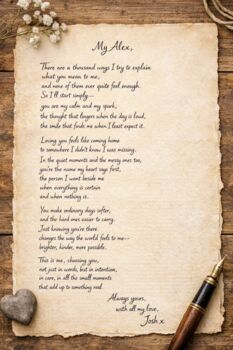 My Alex,
There are a thousand ways I try to explain
what you mean to me,
and none of them ever quite feel enough.
So I'll start simply—
you are my calm and my spark,
the thought that lingers when the day is loud,
the smile that finds me when I least expect it.
Loving you feels like coming home
to somewhere I didn't know I was missing.
In the quiet moments and the messy ones too,
you're the name my heart says first,
the person I want beside me
when everything is certain
and when nothing is.
You make ordinary days softer,
and the hard ones easier to carry.
Just knowing you're there
changes the way the world feels to me—
brighter, kinder, more possible.
This is me, choosing you,
not just in words, but in intention,
in care, in all the small moments
that add up to something real.
Always yours,
with all my love,
Josh x